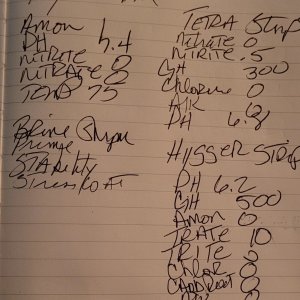 Amon
PH 6.4
NITRITE 0
NITRATE 0
TEMP 75
Brine Shrimp
Prime
STAbility
Stress COAT
TETRA Strip
Nitrate 0
Nitrite .5
GH 300
Chlorine 0
Alk 0
PH 6.8
HYGGER STRIP
PH 6.2
GH 500
Amon 0
TRATE 10
TRITE 0
Chlor 0